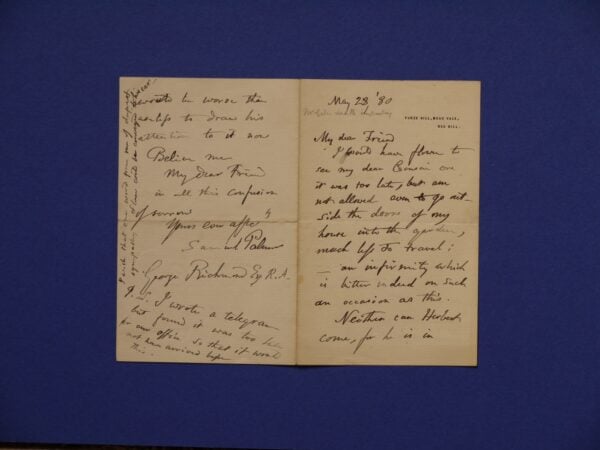 May 23 '80
FURZE HILL, MEAD VALE,
RED HILL.
My dear Friend
I would have flown to
see my dear Cousin ere
it was too late, but am
not allowed even to go out-
side the doors of my
house into the garden,
much less to travel;
— an infirmity which
is bitter indeed on such
an occasion as this.
Neither can Herbert
come, for he is in
would be worse than
useless to draw his
attention to it now
Believe me
My dear Friend
in all this confusion
of sorrow
Yours ever affecly
Samuel Palmer
George Richmond Esq R.A.
P.S. I wrote a telegram
but found it was too late
for our office so that it would
not have arrived before
this.
I wish that any word from me of deepest
sympathy